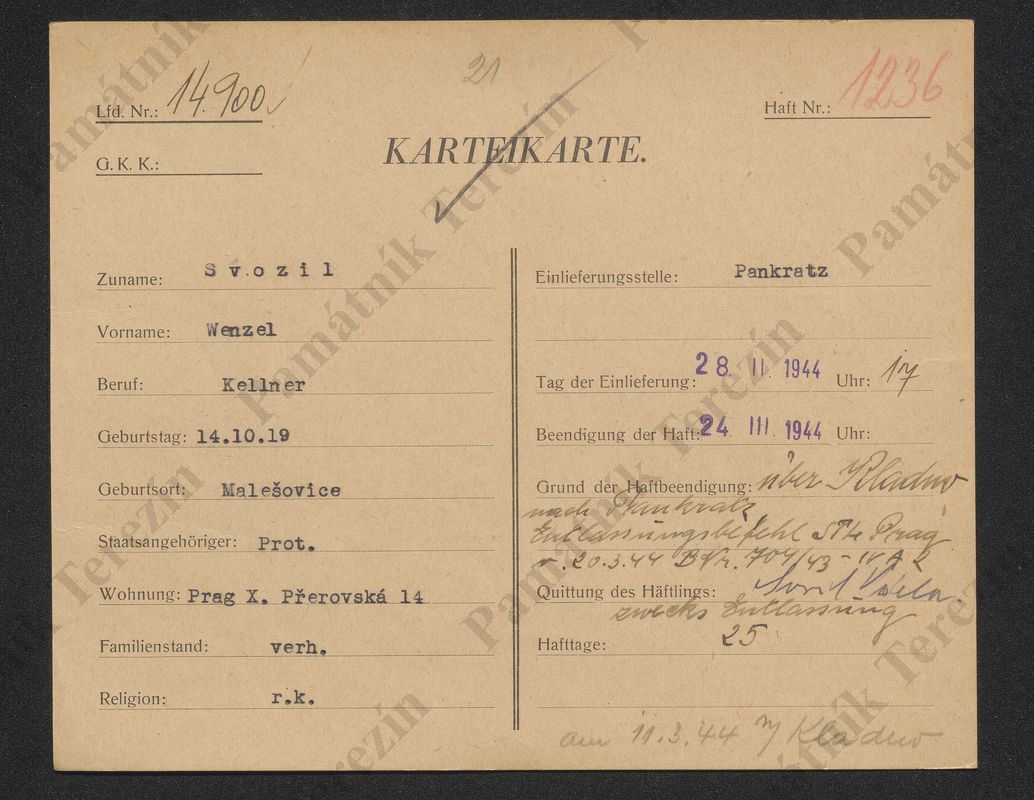 21
Lfd. Nr.: 14.900
Haft Nr.: 1236
G. K. K.:
KARTEIKARTE.
Zuname: Svozil
Vorname: Wenzel
Beruf: Kellner
Geburtstag: 14.10.19
Geburtsort: Malešovice
Staatsangehöriger: Prot.
Wohnung: Prag X. Přerovská 14
Familienstand: verh.
Religion: r.k.
Einlieferungsstelle: Pankratz
Tag der Einlieferung: 28. II 1944 Uhr: 17
Beendigung der Haft: 24 III 1944 Uhr:
Grund der Haftbeendigung: über Kladno
nach Pankratz
Entlassungsbefehl Prag
v. 20.3.44 B.Nr. 704/43 - IV A 2
Quittung des Häftlings:
zwecks Entlassung
Hafttage: 25
am 11.3.44 n/ Kladno
Památník Terezín